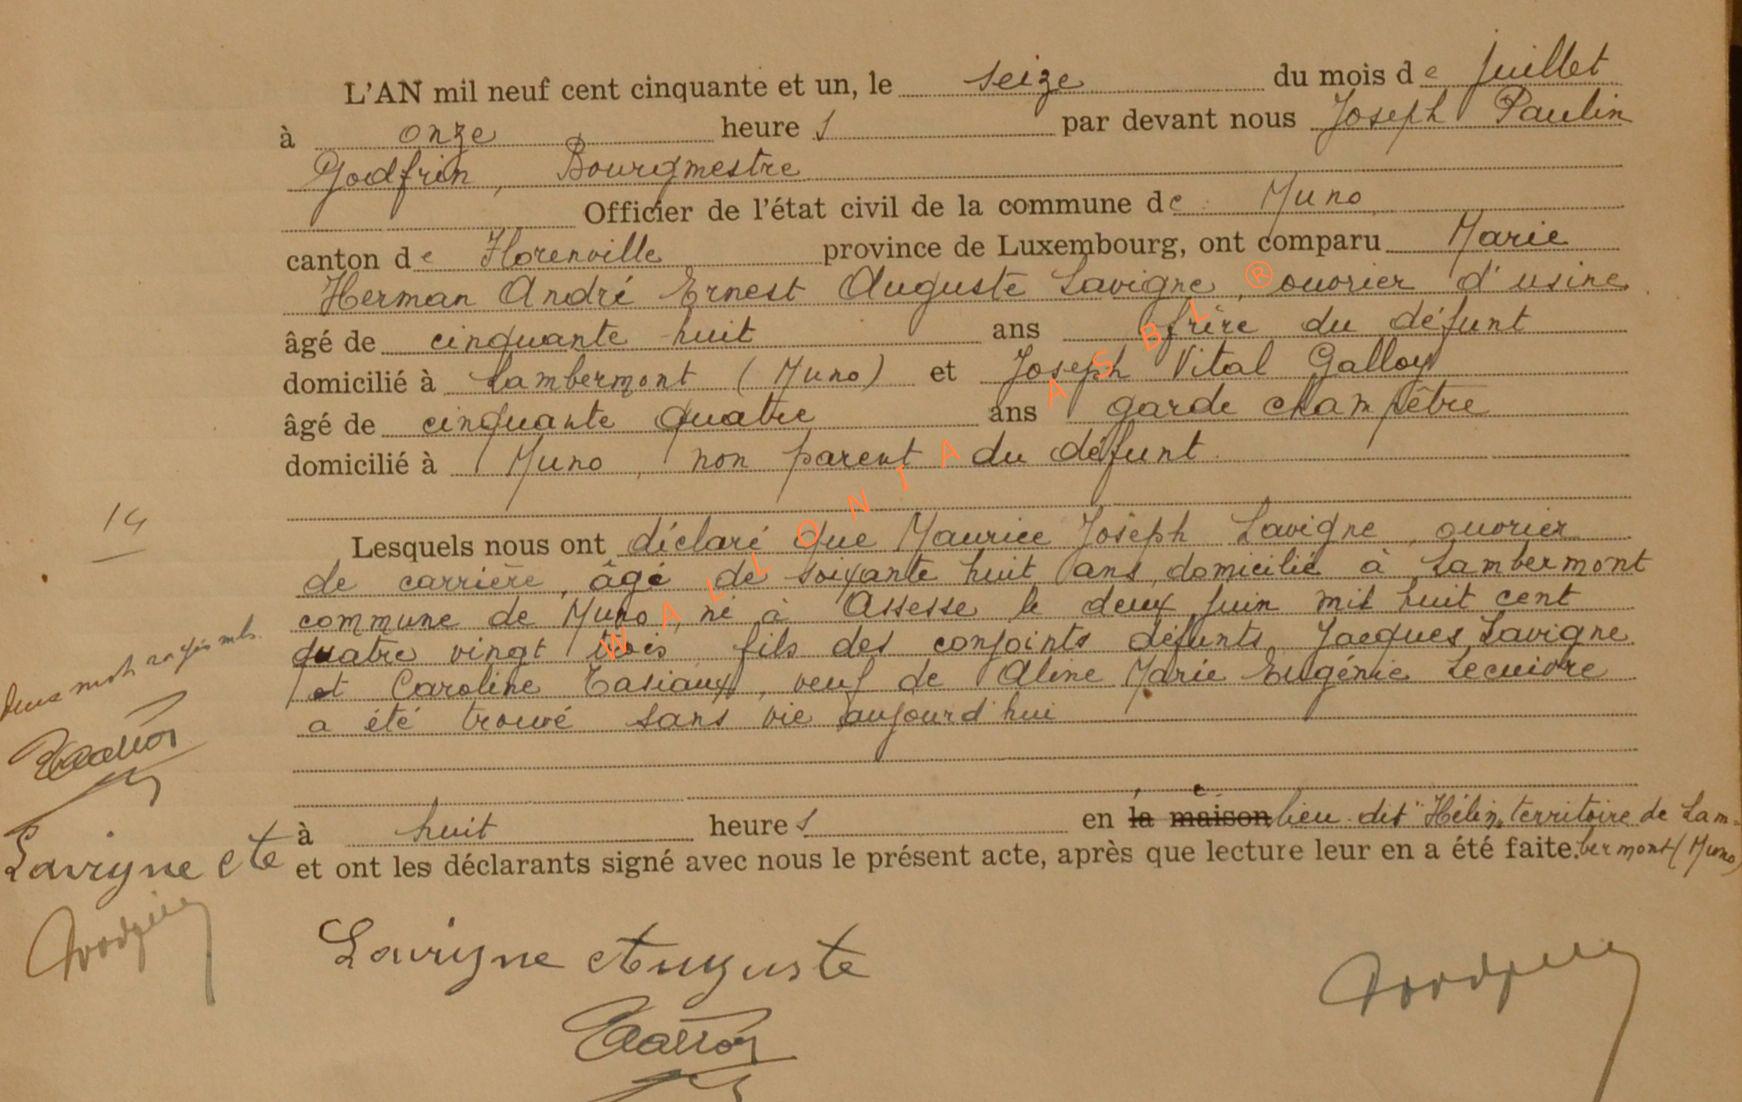 L'AN mil neuf cent cinquante et un, le seize du mois de juillet
à onze heures par devant nous Joseph Paulin
Godfrin, Bourgmestre
Officier de l'état civil de la commune de Muno
canton de Florenville province de Luxembourg, ont comparu Marie
Herman André Ernest Auguste Lavigne, ouvrier d'usine
âgé de cinquante huit ans frère du défunt
domicilié à Lambermont (Muno) et Joseph Vital Galloy
âgé de cinquante quatre ans garde champêtre
domicilié à Muno, non parent du défunt
14
Lesquels nous ont déclaré que Maurice Joseph Lavigne, ouvrier
de carrière, âgé de soixante huit ans, domicilié à Lambermont
commune de Muno, né à Assesse le deux juin mil huit cent
quatre vingt trois fils des conjoints défunts Jacques Lavigne
et Caroline Tasiaux, veuf de Aline Marie Eugénie Lecuivre
a été trouvé sans vie aujourd'hui
Deux mots rayés nuls.
à huit heures en la maison lieu dit "Hélin, territoire de Lam-
et ont les déclarants signé avec nous le présent acte, après que lecture leur en a été faite. bermont (Muno)
Lavigne Ate
Lavigne Auguste
WALLONIA ASBL ®